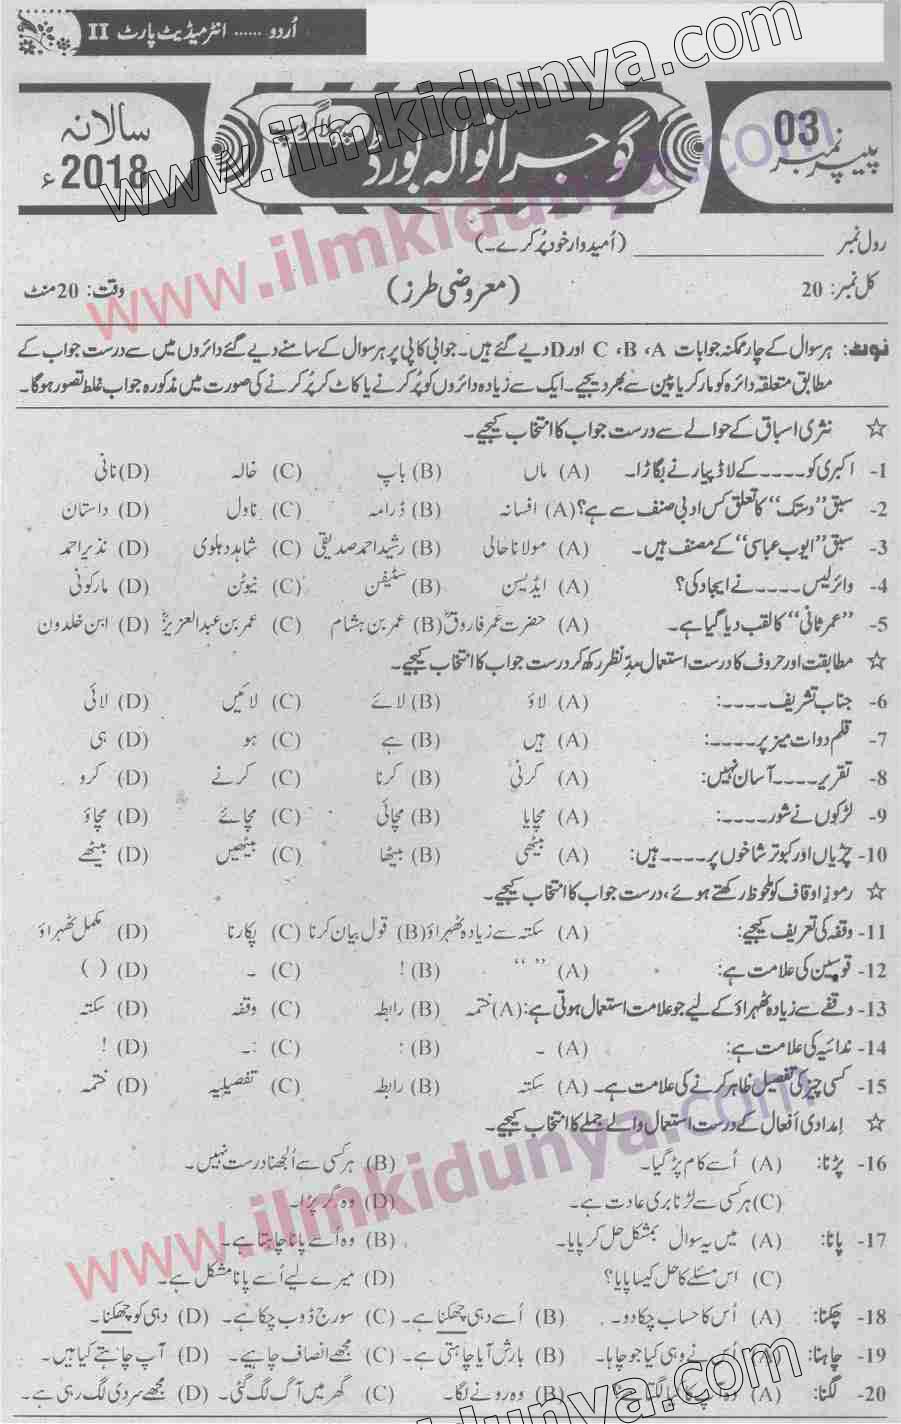 اُردو ...... انٹرمیڈیٹ پارٹ II
www.ilmkidunya.com
پیپر نمبر 03
گوجرانوالہ بورڈ
پہلا گروپ
سالانہ 2018ء
رول نمبر ____________ (اُمیدوار خود پُر کرے۔)
کل نمبر: 20 (معروضی طرز) وقت: 20 منٹ
نوٹ: ہر سوال کے چار ممکنہ جوابات C ،B ،A اور D دیے گئے ہیں۔ جوابی کاپی پر ہر سوال کے سامنے دیے گئے دائروں میں سے درست جواب کے
مطابق متعلقہ دائرہ کو مارکر یا پین سے بھر دیجیے۔ ایک سے زیادہ دائروں کو پُر کرنے یا کاٹ کر پُر کرنے کی صورت میں مذکورہ جواب غلط تصور ہوگا۔
☆ نثری اسباق کے حوالے سے درست جواب کا انتخاب کیجیے۔
1- اکبری کو ---- کے لاڈ پیار نے بگاڑا۔ (A) ماں (B) باپ (C) خالہ (D) نانی
2- سبق ’’دستک‘‘ کا تعلق کس ادبی صنف سے ہے؟ (A) افسانہ (B) ڈرامہ (C) ناول (D) داستان
3- سبق ’’ایوب عباسی‘‘ کے مصنف ہیں۔ (A) مولانا حالی (B) رشید احمد صدیقی (C) شاہد دہلوی (D) نذیر احمد
4- وائرلیس ---- نے ایجاد کی؟ (A) ایڈیسن (B) سٹیفن (C) نیوٹن (D) مارکونی
5- ’’عمر ثانی‘‘ کا لقب دیا گیا ہے۔ (A) حضرت عمر فاروقؓ (B) عمر بن ہشام (C) عمر بن عبدالعزیزؒ (D) ابن خلدون
☆ مطابقت اور حروف کا درست استعمال مدِّنظر رکھ کر درست جواب کا انتخاب کیجیے۔
6- جناب تشریف ----: (A) لاؤ (B) لائے (C) لائیں (D) لائی
7- قلم دوات میز پر ----: (A) ہیں (B) ہے (C) ہو (D) ہی
8- تقریر ---- آسان نہیں: (A) کرنی (B) کرنا (C) کرنے (D) کرو
9- لڑکوں نے شور ----: (A) مچایا (B) مچائی (C) مچائے (D) مچاؤ
10- چڑیاں اور کبوتر شاخوں پر ---- ہیں: (A) بیٹھی (B) بیٹھا (C) بیٹھیں (D) بیٹھے
☆ رموزِ اوقاف کو ملحوظ رکھتے ہوئے، درست جواب کا انتخاب کیجیے۔
11- وقفہ کی تعریف کیجیے: (A) سکتہ سے زیادہ ٹھہراؤ (B) قول بیان کرنا (C) پکارنا (D) مکمل ٹھہراؤ
12- قوسین کی علامت ہے: (A) ’’ ‘‘ (B) ! (C) ۔ (D) ( )
13- وقفے سے زیادہ ٹھہراؤ کے لیے جو علامت استعمال ہوتی ہے: (A) ختمہ (B) رابطہ (C) وقفہ (D) سکتہ
14- ندائیہ کی علامت ہے: (A) ۔ (B) : (C) :۔ (D) !
15- کسی چیز کی تفصیل ظاہر کرنے کی علامت ہے۔ (A) سکتہ (B) رابطہ (C) تفصیلیہ (D) ختمہ
☆ اِمدادی اَفعال کے درست استعمال والے جملے کا انتخاب کیجیے۔
16- پڑنا: (A) اُسے کام پڑ گیا۔ (B) ہر کسی سے اُلجھنا درست نہیں۔
(C) ہر کسی سے لڑنا بری عادت ہے۔ (D) وہ گر پڑا۔
17- پانا: (A) میں یہ سوال بمشکل حل کر پایا۔ (B) وہ اُسے پانا چاہتا ہے۔
(C) اس مسئلے کا حل کیسا پایا؟ (D) میرے لیے اُسے پانا مشکل ہے۔
18- چکنا: (A) اُس کا حساب چکا دو۔ (B) اُسے دہی چھکنا ہے۔ (C) سورج ڈوب چکا ہے۔ (D) دہی کو چھکنا۔
19- چاہنا: (A) اُس نے وہی کیا جو چاہا۔ (B) بارش آیا چاہتی ہے۔ (C) مجھے انصاف چاہیے۔ (D) آپ چاہتے کیا ہیں۔
20- لگنا: (A) وہ آپ کا کیا لگتا ہے؟ (B) وہ رونے لگا۔ (C) گھر میں آگ لگ گئی۔ (D) مجھے سردی لگ رہی ہے۔
www.ilmkidunya.com